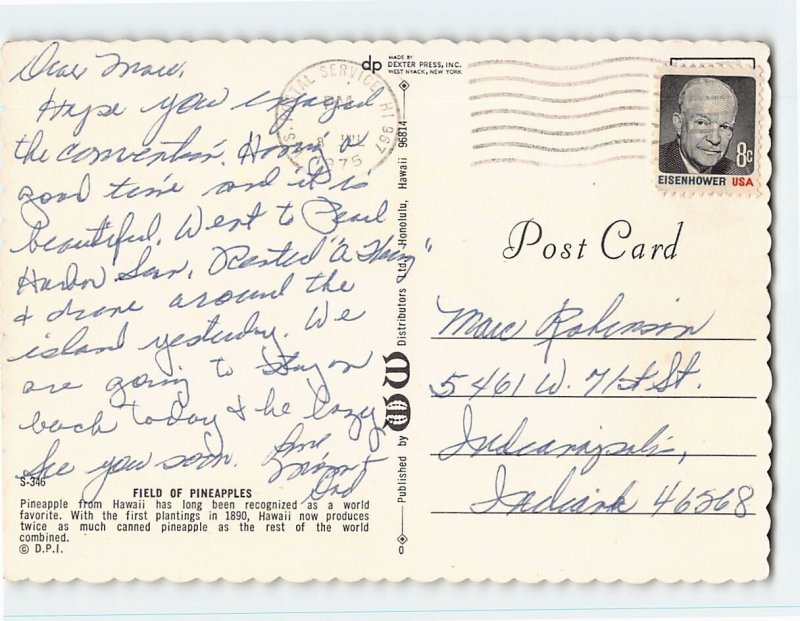 Dear Marc,
Hope you enjoyed
the convention. Havin' a
good time and it is
beautiful. Went to Pearl
Harbor Sun. Rented "A Thing"
& drove around the
island yesterday. We
are going to stay on
back today & be lazy
See you soon. Love
Mom &
Dad
S-346
FIELD OF PINEAPPLES
Pineapple from Hawaii has long been recognized as a world
favorite. With the first plantings in 1890, Hawaii now produces
twice as much canned pineapple as the rest of the world
combined.
© D.P.I.
dp
MADE BY
DEXTER PRESS, INC.
WEST NYACK, NEW YORK
Published by WW Distributors Ltd., Honolulu, Hawaii 96814
U.S. POSTAL SERVICE HI 967
PM
8
1975
8c
EISENHOWER USA
Post Card
Marc Robinson
5461 W. 71st St.
Indianapolis,
Indiana 46568